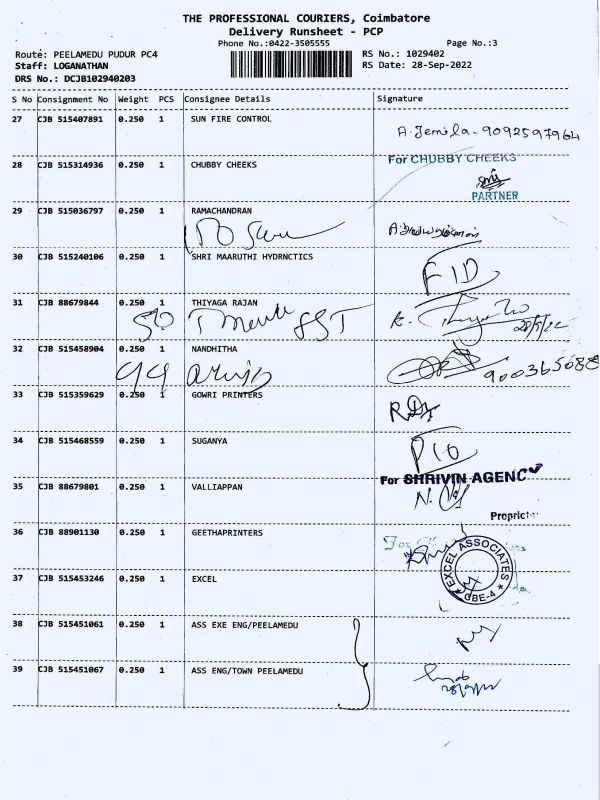 THE PROFESSIONAL COURIERS, Coimbatore
Delivery Runsheet - PCP
Phone No.:0422-3505555 Page No.:3
Route: PEELAMEDU PUDUR PC4 RS No.: 1029402
Staff: LOGANATHAN RS Date: 28-Sep-2022
DRS No.: DCJB102940203
S No Consignment No Weight PCS Consignee Details Signature
27 CJB 515407891 0.250 1 SUN FIRE CONTROL
A. Jemila - 9092597964
28 CJB 515314936 0.250 1 CHUBBY CHEEKS For CHUBBY CHEEKS
PARTNER
29 CJB 515036797 0.250 1 RAMACHANDRAN
30 CJB 515240106 0.250 1 SHRI MAARUTHI HYDRNCTICS
FID
31 CJB 88679844 0.250 1 THIYAGA RAJAN
32 CJB 515458904 0.250 1 NANDHITHA
33 CJB 515359629 0.250 1 GOWRI PRINTERS
34 CJB 515468559 0.250 1 SUGANYA
For SHRIVIN AGENC
35 CJB 88679801 0.250 1 VALLIAPPAN
36 CJB 88901130 0.250 1 GEETHAPRINTERS
EXCEL ASSOCIATES
CBE-4
37 CJB 515453246 0.250 1 EXCEL
38 CJB 515451061 0.250 1 ASS EXE ENG/PEELAMEDU
39 CJB 515451067 0.250 1 ASS ENG/TOWN PEELAMEDU